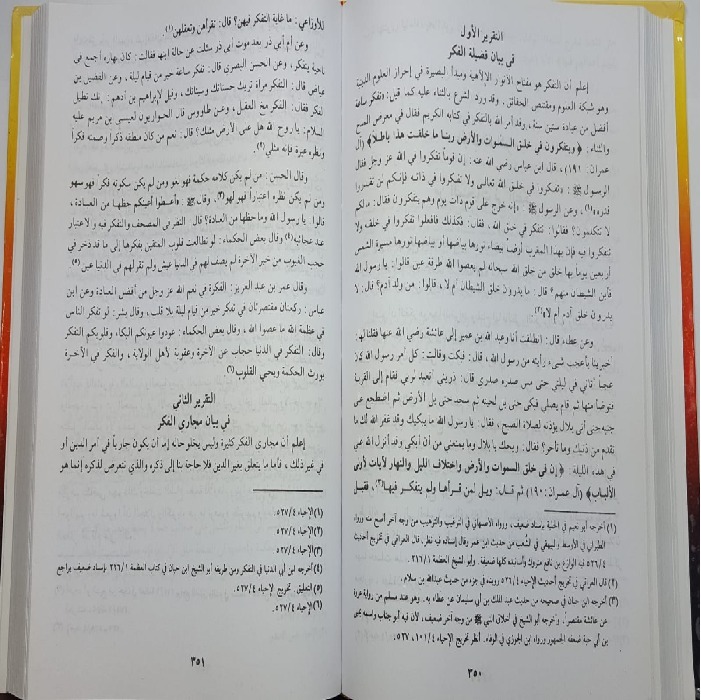 التقرير الأول
فى بيان فضيلة الفكر
إعلم أن التفكر هو مفتاح الأنوار الإلاهية ومبدأ البصيرة في إحراز العلوم الدينية
وهو شبكة العلوم ومقتنص الحقائق، وقد ورد الشرع بالثناء عليه كما قيل: «تفكر ساعة
أفضل من عبادة ستين سنة، وقد أمر الله بالتفكر في كتابه الكريم فقال في معرض المدح
والثناء: ﴿ويتفكرون في خلق السموات والأرض ربنا ما خلقت هذا باطلا﴾ (آل
عمران: ١٩١)، قال ابن عباس رضي الله عنه: إن قوماً تفكروا في الله عز وجل فقال
الرسول ﷺ: «تفكروا في خلق الله تعالى ولا تفكروا في ذاته فإنكم لن تقدروا
قدره»(١)، وعن الرسول ﷺ: «إنه خرج على قوم ذات يوم وهم يتفكرون فقال: مالكم
لا تتكلمون؟ فقالوا: نتفكر في خلق الله، فقال: فكذلك فافعلوا تفكروا في خلقه ولا
تتفكروا فيه فإن بهذا المغرب أرضاً بيضاء نورها بياضها أو بياضها نورها مسيرة الشمس
أربعين يوماً بها خلق من خلق الله سبحانه لم يعصوا الله طرفة عين قالوا: يا رسول الله
فأين الشيطان منهم؟ قال: ما يدرون خلق الشيطان أم لا، قالوا: من ولد آدم؟ قال: لا
يدرون خلق آدم أم لا»(٢).
وعن عطاء قال: انطلقت أنا وعبد الله بن عمير إلى عائشة رضي الله عنها فقلنا لها:
أخبرينا بأعجب شيء رأيته من رسول الله، قال: فبكت وقالت: كل أمر رسول الله كان
عجباً أتاني في ليلتي حتى مس صدره صدري قال: ذريني أتعبد لربي فقام إلى القربة
فتوضأ منها ثم قام يصلي فبكى حتى بل لحيته ثم سجد حتى بل الأرض ثم اضطجع على
جنبه حتى أتى بلال يؤذنه لصلاة الصبح، فقال: يا رسول الله ما يبكيك وقد غفر الله لك ما
تقدم من ذنبك وما تأخر؟ فقال: ويحك يا بلال وما يمنعني من أن أبكي وقد أنزل الله علي
في هذه الليلة: ﴿إن في خلق السموات والأرض واختلاف الليل والنهار لآيات لأولي
الألباب﴾ (آل عمران: ١٩٠) ثم قال: ويل لمن قرأها ولم يتفكر فيها(٣)، فقيل
(١) أخرجه أبو نعيم في الحلية بإسناد ضعيف، ورواه الأصبهاني في الترغيب والترهيب من وجه آخر أصح منه ورواه
الطبراني في الأوسط والبيهقي في الشعب من حديث ابن عمر وقال إسناده فيه نظر، قال العراقي في تخريج أحاديث
٥٢٦/٤ فيه الوازع بن نافع متروك وأسانيده كلها ضعيفة. وأبو الشيخ العظمة ٢١٦/١.
(٢) قال العراقي في تخريج أحاديث الإحياء ٥٢٦/٤ رويته في جزء من حديث عبدالله بن سلام.
(٣) أخرجه ابن حبان في صحيحه من حديث عبد الملك بن أبي سليمان عن عطاء به. وهو عند مسلم من رواية عروة
عن عائشة مختصراً. وأخرجه أبو الشيخ في أخلاق النبي ﷺ من وجه آخر ضعيف، لأن فيه أبو جناب واسمه يحيى
بن أبي حية ضعفه الجمهور ورواه ابن الجوزي في الوفاء. أنظر تخريج الإحياء ١٠١/٤، ٥٢٧.
٣٥٠
للأوزاعي: ما غاية التفكر فيهن؟ قال: تقرأهن وتعقلهن(١).
وعن أم أبي ذر بعد موت أبي ذر سئلت عن حالة ابنها فقالت: كان نهاره أجمع في
ناحية يتفكر، وعن الحسن البصري قال: تفكر ساعة خير من قيام ليلة، وعن الفضيل بن
عياض قال: التفكر مرآة تريك حسناتك وسيئاتك، وقيل لإبراهيم بن أدهم: إنك تطيل
الفكر فقال: الفكر مخ العقل، وعن طاووس قال الحواريون لعيسى بن مريم عليه
السلام: يا روح الله هل على الأرض مثلك؟ قال: نعم من كان منطقه ذكرا وصمته فكراً
ونظره عبرة فإنه مثلي(٢).
وقال الحسن: من لم يكن كلامه حكمة فهو لغو ومن لم يكن سكوته تفكراً فهو سهو
ومن لم يكن نظره اعتباراً فهو لهو(٣)، وقال ﷺ: «أعطوا أعينكم حظها من العبادة،
قالوا: يا رسول الله وما حظها من العبادة؟ قال: النظر في المصحف والتفكر فيه والاعتبار
عند عجائبه(٤) وقال بعض الحكماء: لو تطالعت قلوب المتقين بفكرها إلى ما قد ذخر في
حجب الغيوب من خير الآخرة لم يصف لهم في الدنيا عيش ولم تقر لهم في الدنيا عين(٥)
وقال عمر بن عبد العزيز: الفكرة في نعم الله عز وجل من أفضل العبادة وعن ابن
عباس: ركعتان مقتصدتان في تفكر خير من قيام ليلة بلا قلب، وقال بشر: لو تفكر الناس
في عظمة الله ما عصوا الله، وقال بعض الحكماء: عودوا عيونكم البكاء وقلوبكم التفكر
وقال: التفكر في الدنيا حجاب عن الآخرة وعقوبة لأهل الولاية، والفكر في الآخرة
يورث الحكمة ويحيي القلوب(٦).
التقرير الثانى
في بيان مجارى الفكر
إعلم أن مجاري الفكر كثيرة وليس يخلو حاله إما أن يكون جارياً في أمر الدين أو
في غير ذلك، فأما ما يتعلق بغير الدين فلا حاجة بنا إلى ذكره والذي نتعرض لذكره إنما هو
(١) الإحياء ٥٢٧/٤.
(٢) الإحياء ٥٢٧/٤.
(٣) الإحياء ٥٢٧/٤.
(٤) أخرجه ابن أبي الدنيا في التفكر ومن طريقه أبو الشيخ ابن حبان في كتاب العظمة ٢٦٦/١ بإسناد ضعيف يراجع
(٥) التعليق. تخريج الإحياء ٥٢٧/٤.
(٦) الإحياء ٥٢٧/٤.
٣٥١